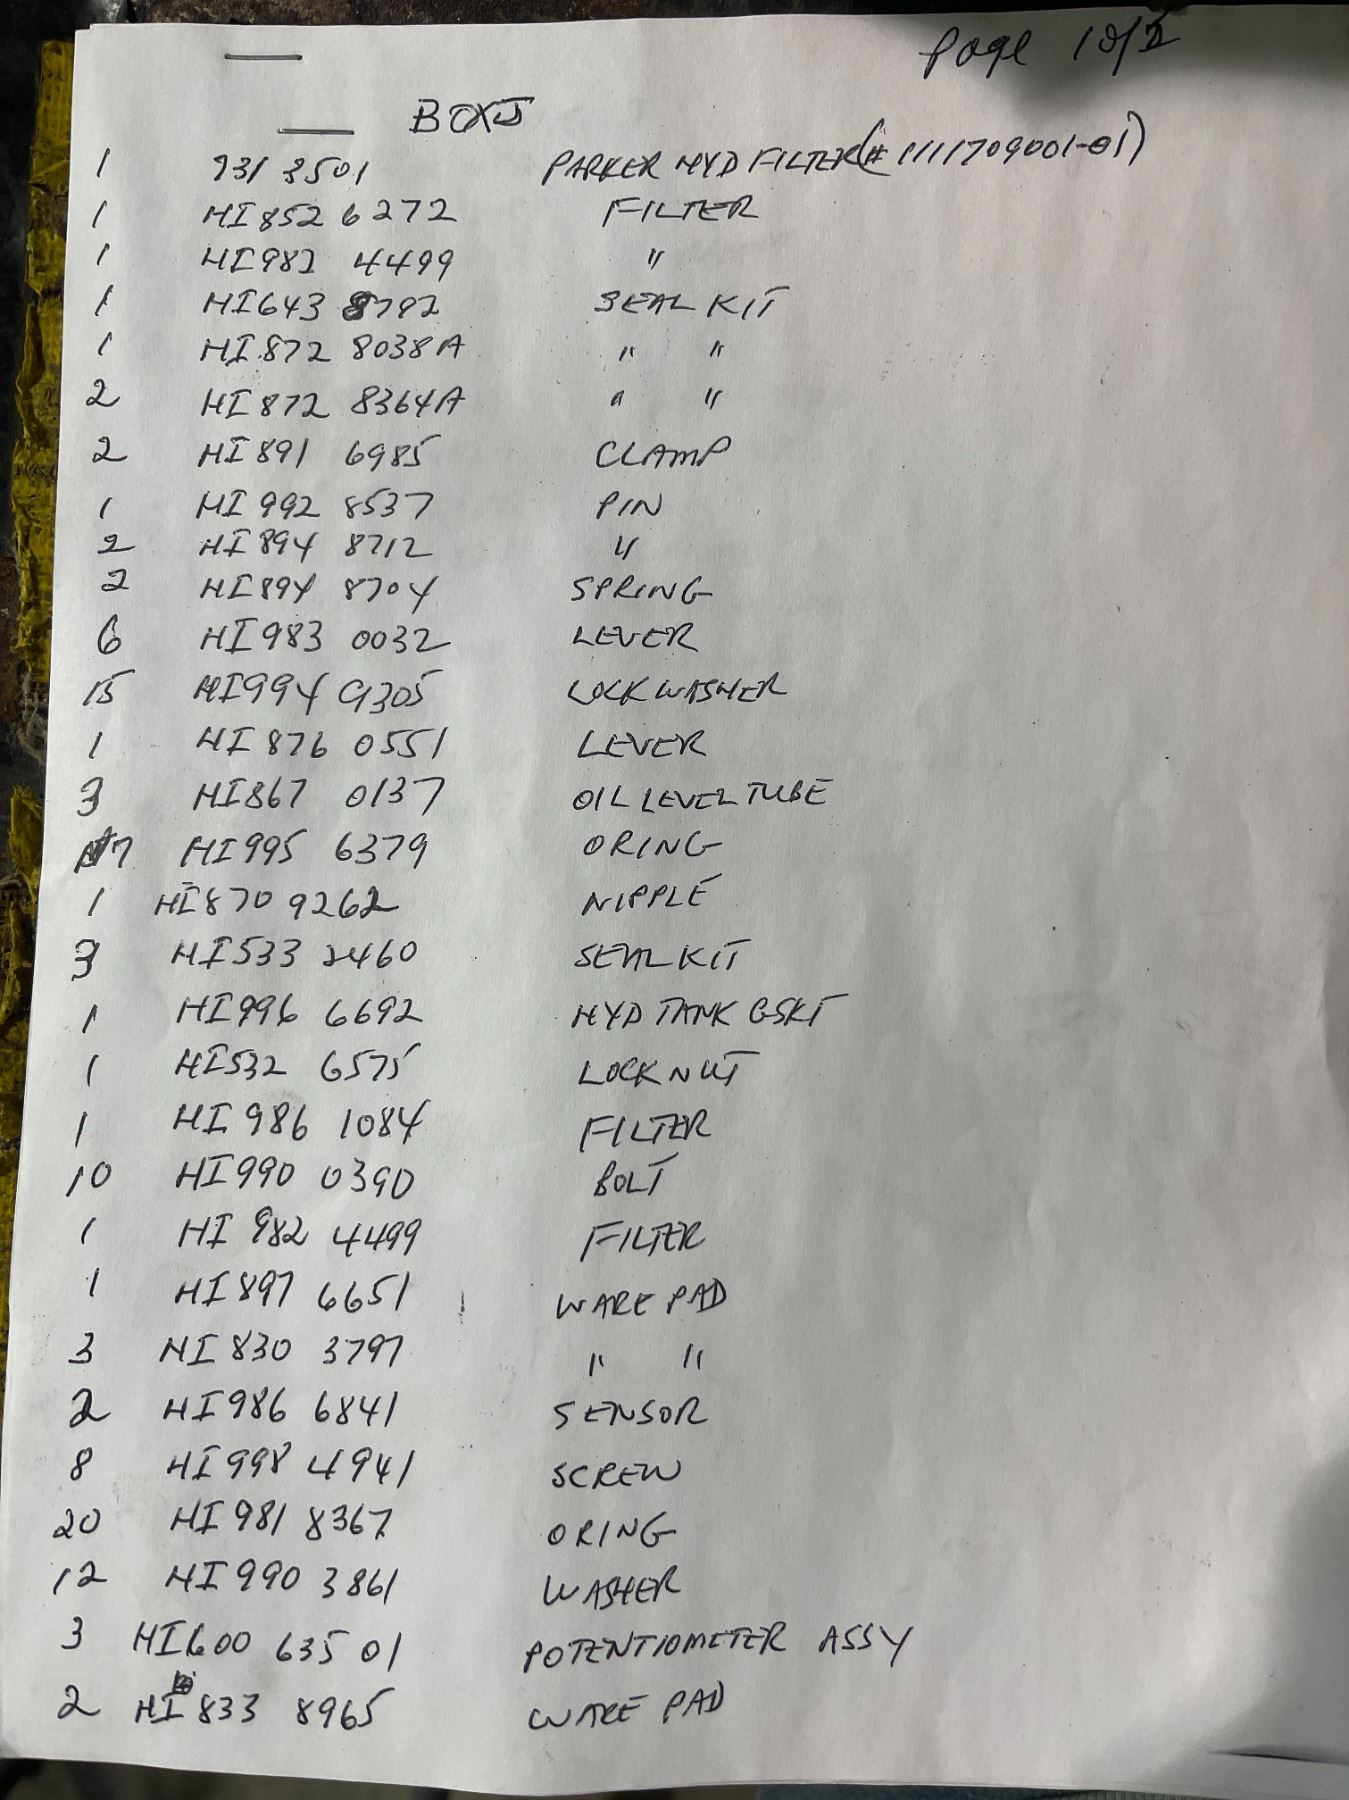 Page 1 of 2
BOX 5
1 931 3501 PARKER HYD FILTER (# 1111709001-01)
1 HI 852 6272 FILTER
1 HI 982 4499 "
1 HI 643 8792 SEAL KIT
1 HI 872 8038A " "
2 HI 872 8364A " "
2 HI 891 6985 CLAMP
1 HI 992 8537 PIN
2 HI 894 8712 "
2 HI 894 8704 SPRING
6 HI 983 0032 LEVER
15 HI 994 9305 LOCK WASHER
1 HI 876 0551 LEVER
3 HI 867 0137 OIL LEVEL TUBE
7 HI 995 6379 ORING
1 HI 870 9262 NIPPLE
3 HI 533 2460 SEAL KIT
1 HI 996 6692 HYD TANK GSKT
1 HI 532 6575 LOCK NUT
1 HI 986 1084 FILTER
10 HI 990 0390 BOLT
1 HI 982 4499 FILTER
1 HI 897 6651 WARE PAD
3 HI 830 3797 " "
2 HI 986 6841 SENSOR
8 HI 998 4941 SCREW
20 HI 981 8367 ORING
12 HI 990 3861 WASHER
3 HI 600 635 01 POTENTIOMETER ASSY
2 HI 833 8965 WARE PAD